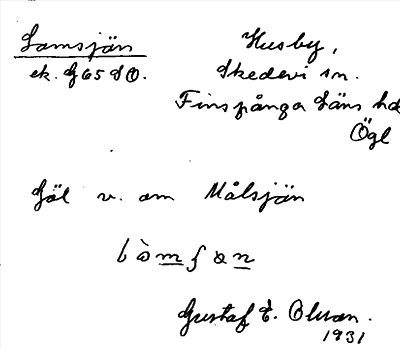 Lomsjön
ek. bl 65 SO.
Husby,
Skedevi sn.
Finspånga Läns hd
Ögl
Göl v. om Målsjön
Gustaf E. Olsson.
1931